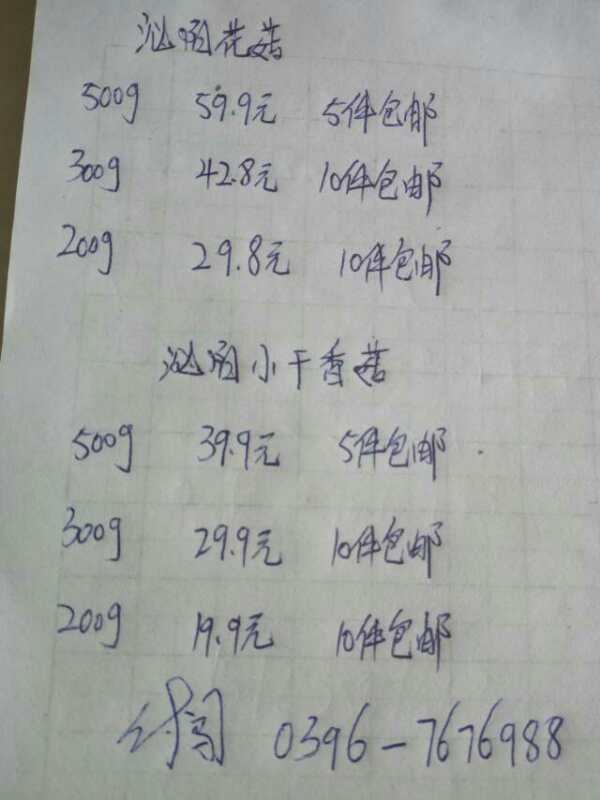 泌阳花菇
500g 59.9元 5件包邮
300g 42.8元 10件包邮
200g 29.8元 10件包邮
泌阳小干香菇
500g 39.9元 5件包邮
300g 29.9元 10件包邮
200g 19.9元 10件包邮
0396-7676988